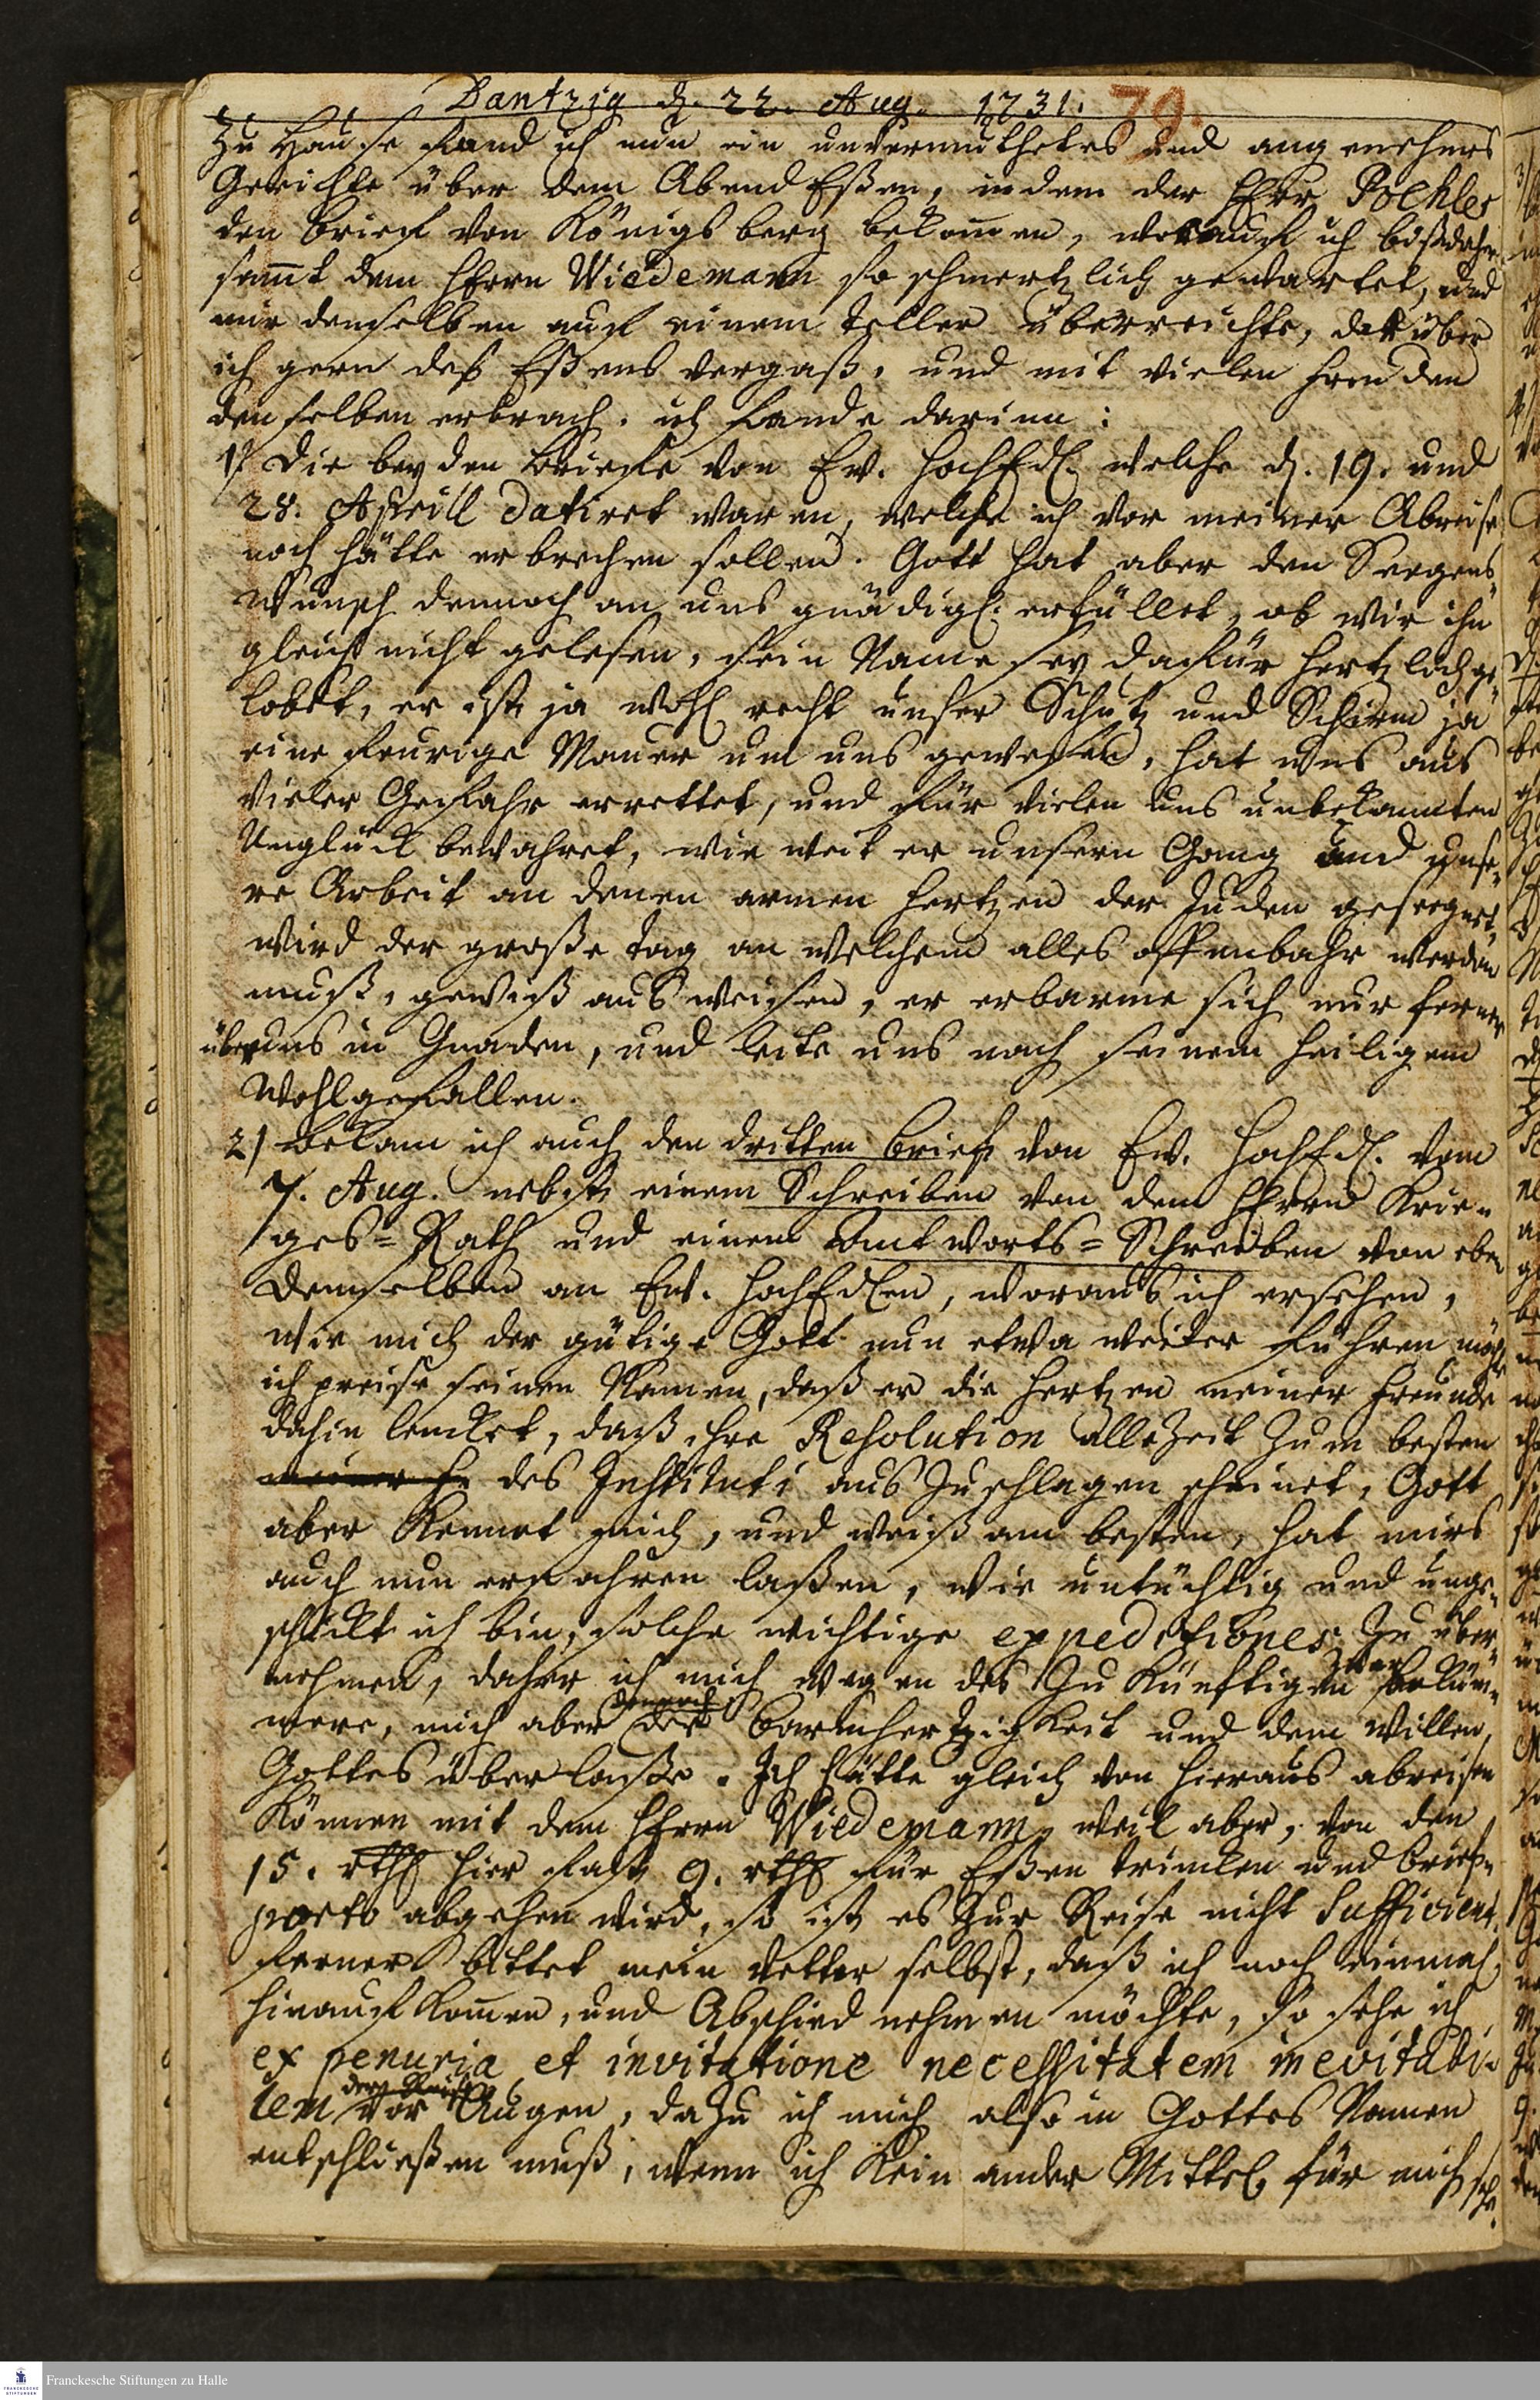 Dantzig d. 22. Aug. 1731. 79.
Zu Hause fand ich nun ein unvermuthetes und angenehmes
Gerichte über dem Abend Eßen, indem der Herr Poehler
den brieff von Königsberg bekommen, worauff ich bißdaher
sammt dem Herrn Wiedemann so schmertzlich gewartet, und
mir denselben auff einem teller überreichte, darüber
ich gern deß Eßens vergaß, und mit vielen freuden
denselben erbrach. ich fande darinn:
1) Die beyden Brieffe von Ew. HochEdl. welche d. 19. und
28. Aprill datiret waren, welche ich vor meiner Abreise
noch hätte erbrechen sollen. Gott hat aber den Seegens
Wunsch dennoch an uns gnädigl. erfüllet, ob wir ihn
gleich nicht gelesen, sein Name sey dafür hertzlich ge-
lobet, er ist ja wohl recht unser Schutz und Schirm ja
eine feurige Mauer um uns gewesen, hat uns aus
vieler Gefahr errettet, und für vielen uns unbekannten
Unglück bewahret, wie weit er unsern Gang und unse-
re Arbeit an denen armen hertzen der Juden geseegnet,
wird der große tag an welchem alles offenbahr werden
muß, gewiß ausweisen, er erbarme sich nur ferner
über uns in Gnaden, und leite uns nach seinem heiligem
Wohlgefallen.
2) bekam ich auch den dritten brieff von Ew. HochEdl. vom
7. Aug. nebst einem Schreiben von dem Herrn Krie-
ges-Rath und einem Antworts-Schreiben von eben
demselben an Ew. HochEdlen, woraus ich ersehen,
wie mich der gütige Gott nun etwa weiter führen möchte
ich preise seinen Namen, daß er die hertzen meiner freunde
dahin lencket, daß ihre Resolution allezeit zum besten
des Instituti auszuschlagen scheinet, Gott
aber kennet mich, und weiß am besten, hat mirs
auch nun erfahren laßen, wie untüchtig und unge-
schickt ich bin, solche wichtige expeditiones zu über-
nehmen, daher ich mich wegen des zukünftigen zwar bekümm-
mere, mich aber dennoch der barmhertzigkeit und dem willen
Gottes überlaße. Ich hätte gleich von hieraus abreisen
können mit dem Herrn Wiedemann, weil aber, von den
15. rthl hier fast 9. rthl für Eßen trincken und brieff-
porto abgehen wird, so ist es zur Reise nicht sufficient,
ferner bittet mein vetter selbst, daß ich noch einmahl
hinauff kommen, und Abschied nehmen möchte, so sehe ich
ex penuria et invitatione necessitatem inevitabi-
lem der Reise vor Augen, dazu ich mich also in Gottes Namen
entschließen muß, wenn ich kein ander Mittel für mich sehe.
Franckesche Stiftungen zu Halle